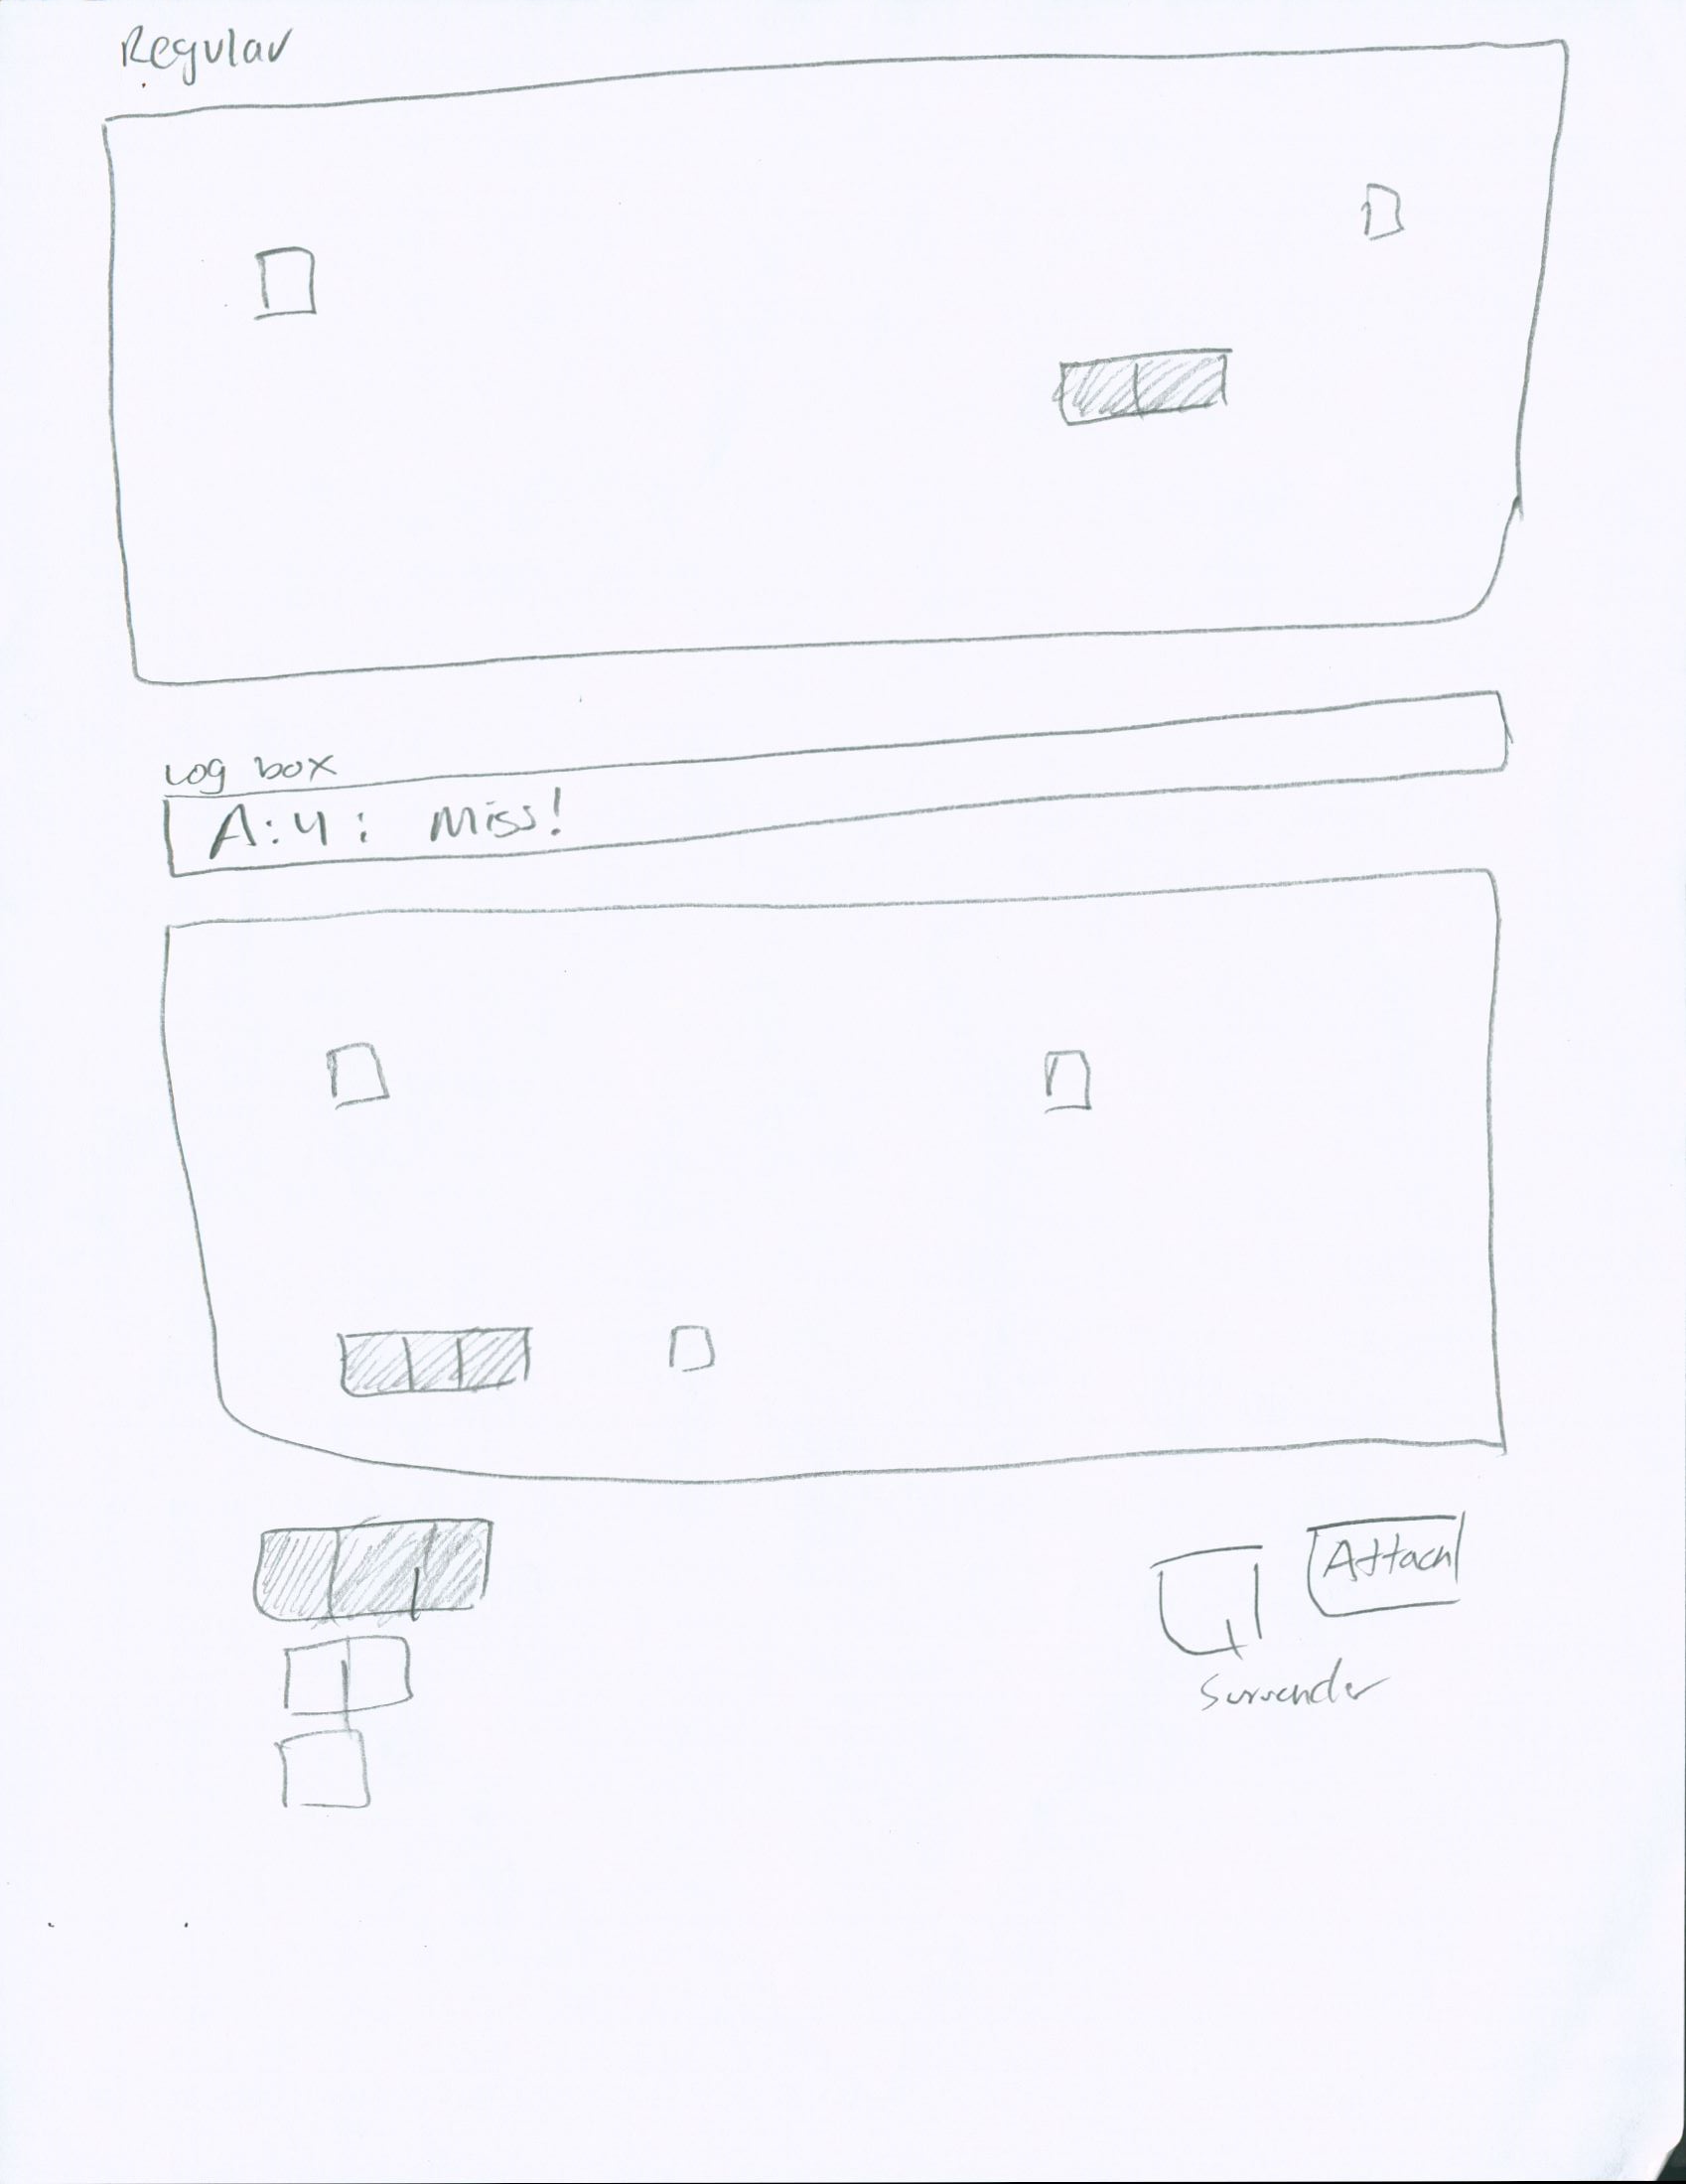 Regular
Log box
A:4: Miss!
Attack
Surrender